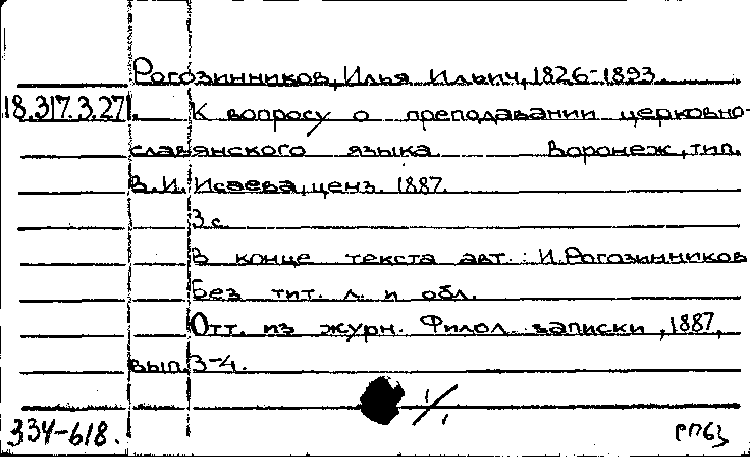 Рогозинников, Илья Ильич, 1826-1893.
18.317.3.271. К вопросу о преподавании церковно-
славянского языка. Воронеж, тип.
В.И. Исаева, ценз. 1887.
3 с.
В конце текста авт.: И. Рогозинников
Без тит. л. и обл.
Отт. из журн. Филол. записки, 1887,
вып. 3-4.
1/1
334-618. РП63